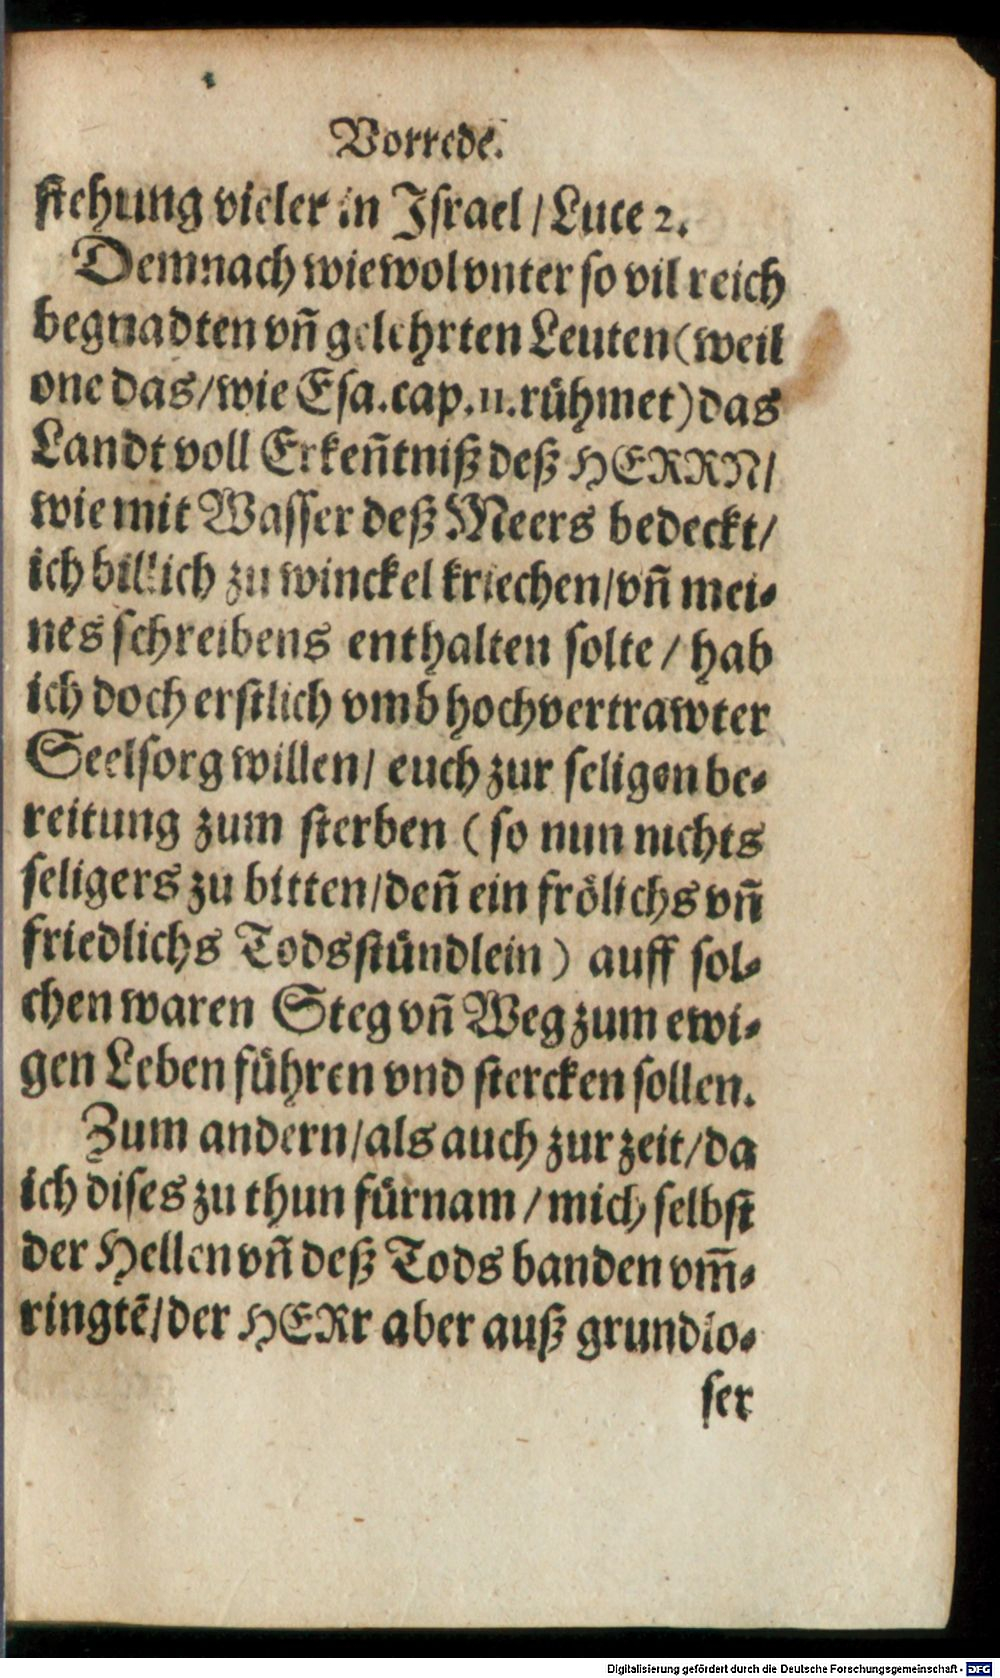 Vorrede.
stehung vieler in Israel / Luce 2.
Demnach wiewol vnter so vil reich
begnadten vn̄ gelehrten Leuten (weil
one das / wie Esa. cap. 11. rühmet) das
Landt voll Erken̄tniß deß HERRN /
wie mit Wasser deß Meers bedeckt /
ich billich zu winckel kriechen / vn̄ mei-
nes schreibens enthalten solte / hab
ich doch erstlich vmb hochvertrawter
Seelsorg willen / euch zur seligen be-
reitung zum sterben ( so nun nichts
seligers zu bitten / den̄ ein frölichs vn̄
friedlichs Todsstündlein ) auff sol-
chen waren Steg vn̄ Weg zum ewi-
gen Leben führen vnd stercken sollen.
Zum andern / als auch zur zeit / da
ich dises zu thun fürnam / mich selbst
der Hellen vn̄ deß Tods banden vm̄-
ringtē / der HERr aber auß grundlo-
ser
Digitalisierung gefördert durch die Deutsche Forschungsgemeinschaft - DFG